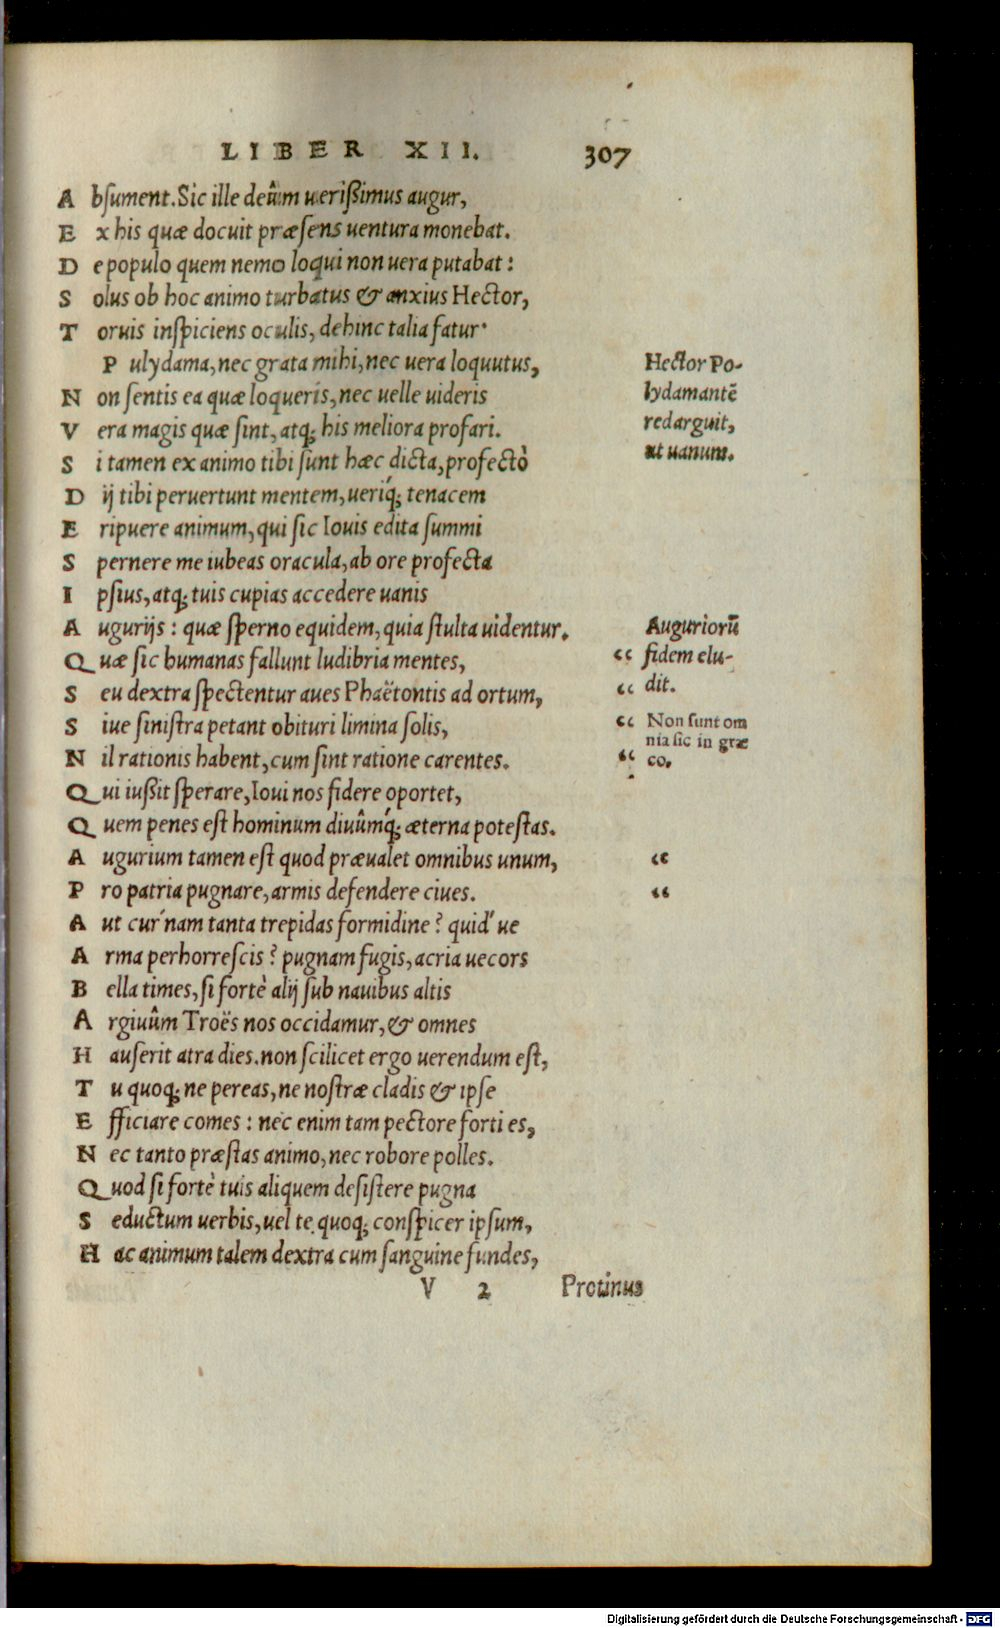 LIBER XII. 307
A bſument. Sic ille deûm ueriſſimus augur,
E x his quæ docuit præſens uentura monebat.
D e populo quem nemo loqui non uera putabat:
S olus ob hoc animo turbatus & anxius Hector,
T oruis inſpiciens oculis, dehinc talia fatur·
P ulydama, nec grata mihi, nec uera loquutus,
N on ſentis ea quæ loqueris, nec uelle uideris
V era magis quæ ſint, atq; his meliora profari.
S i tamen ex animo tibi ſunt hæc dicta, profectò
D ij tibi peruertunt mentem, ueriq́; tenacem
E ripuere animum, qui ſic Iouis edita ſummi
S pernere me iubeas oracula, ab ore profecta
I pſius, atq; tuis cupias accedere uanis
A ugurijs: quæ ſperno equidem, quia ſtulta uidentur.
Q uæ ſic humanas fallunt ludibria mentes,
S eu dextra ſpectentur aues Phaëtontis ad ortum,
S iue ſiniſtra petant obituri limina ſolis,
N il rationis habent, cum ſint ratione carentes.
Q ui iuſſit ſperare, Ioui nos fidere oportet,
Q uem penes eſt hominum diuûmq́; æterna poteſtas.
A ugurium tamen eſt quod præualet omnibus unum,
P ro patria pugnare, armis defendere ciues.
A ut cur'nam tanta trepidas formidine? quid' ue
A rma perhorreſcis? pugnam fugis, acria uecors
B ella times, ſi fortè alij ſub nauibus altis
A rgiuûm Troës nos occidamur, & omnes
H auſerit atra dies. non ſcilicet ergo uerendum eſt,
T u quoq; ne pereas, ne noſtræ cladis & ipſe
E fficiare comes: nec enim tam pectore forti es,
N ec tanto præſtas animo, nec robore polles.
Q uod ſi fortè tuis aliquem deſiſtere pugna
S eductum uerbis, uel te quoq; conſpicer ipſum,
H ac animum talem dextra cum ſanguine fundes,
V 2 Protinus
Hector Po-
lydamantē
redarguit,
ut uanum.
Auguriorū
“ fidem elu-
“ dit.
“ Non ſunt om
nia ſic in græ
“ co.
“
“
Digitalisierung gefördert durch die Deutsche Forschungsgemeinschaft - DFG